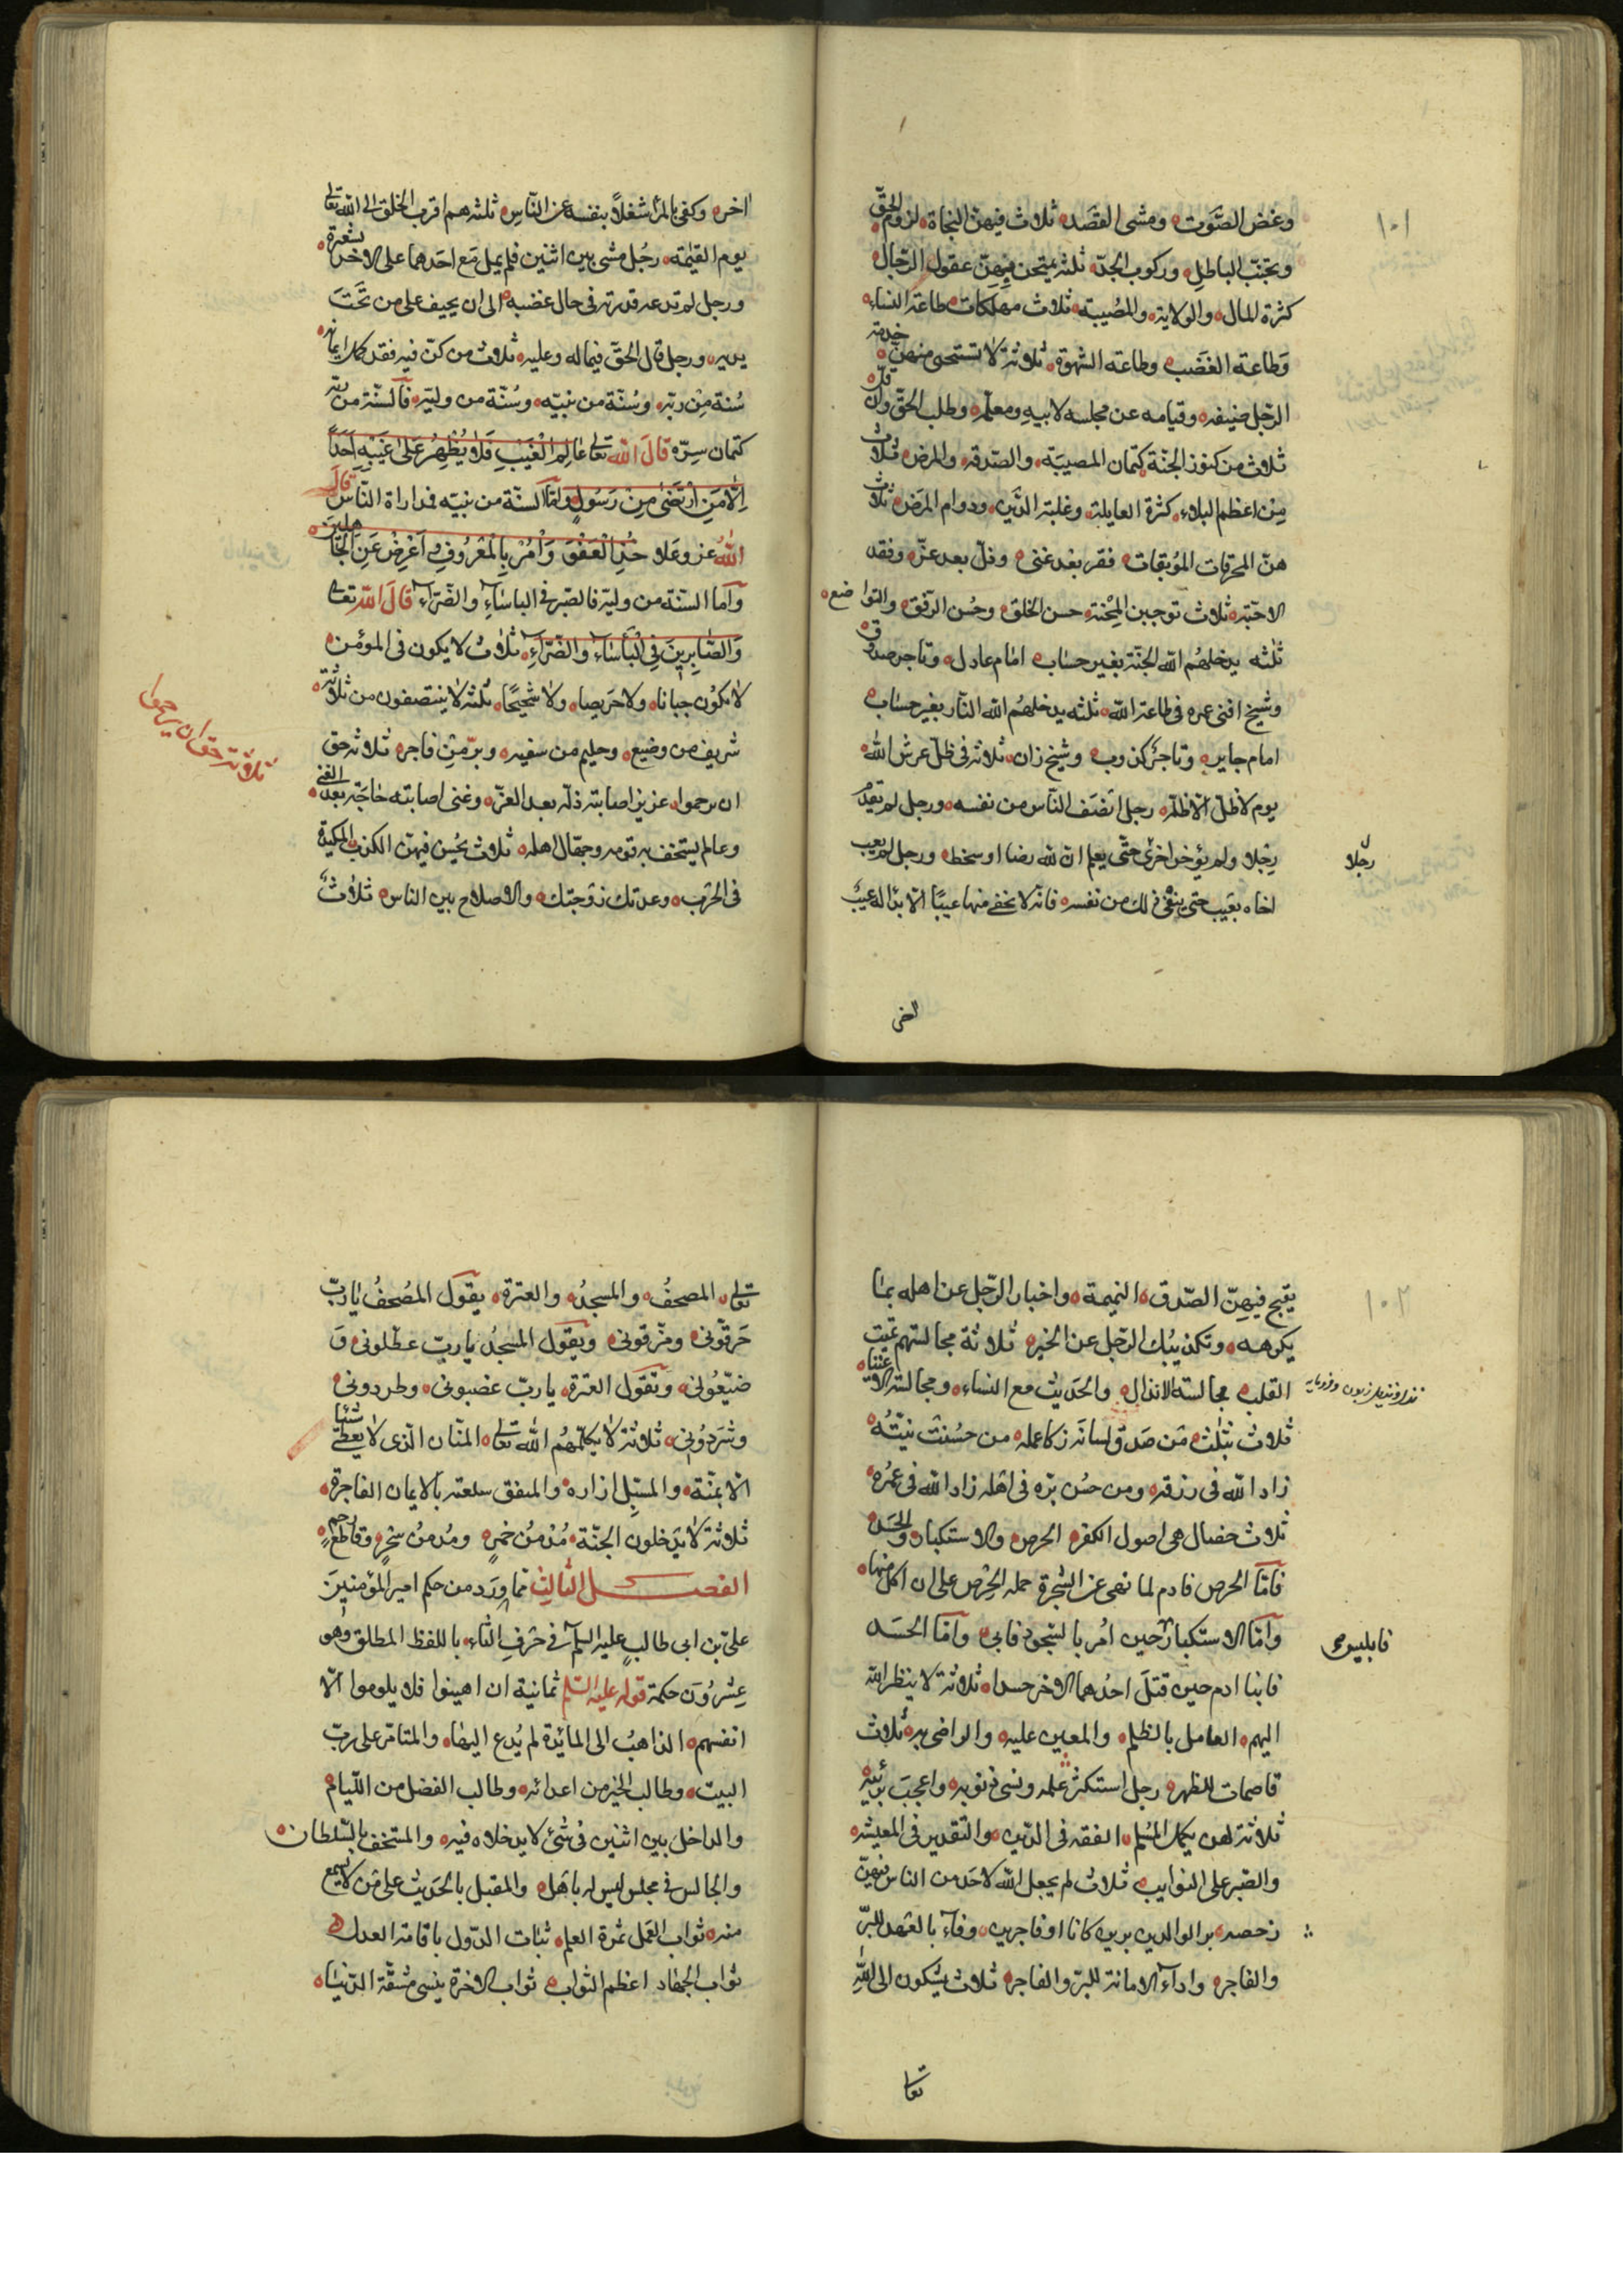 ١٠١
وغض الصّوت ومشى القصد ثلاث فيهنّ النجاة لزوم الحقّ
وتجنّب الباطل وركوب الجدّ ثلثة يمتحن فيهنّ عقول الرّجال
كثرة المال والولاية والمصيبة ثلاث مهلكات طاعة النساء
وطاعة الغضب وطاعة الشهوة ثلاثة لا تستحى منهنّ خدمة
الرّجل ضيفه وقيامه عن مجلسه لابيه ومعلّمه وطلب الحقّ وان قلّ
ثلاث من كنوز الجنّة كتمان المصيبة والصّدقة والمرض ثلاث
من اعظم البلاء كثرة العايلة وغلبة الدّين ودوام المرض ثلاث
هنّ المحرقات الموبقات فقر بعد غنى وذلّ بعد عزّ وفقد
الاحبّة ثلاث توجبن المحبّة حسن الخلق وحسن الرّفق والتواضع
ثلثه يدخلهم الله الجنّة بغير حساب امام عادل وتاجر صدوق
وشيخ افنى عمره فى طاعة الله ثلثه يدخلهم الله النّار بغير حساب
امام جاير وتاجر كذوب وشيخ زان ثلاثة فى ظلّ عرش الله
يوم لا ظلّ الّا ظلّه رجل انصف النّاس من نفسه ورجل لم يقدّم
رجلا ولم يؤخر اخرى حتّى يعلم انّ لله رضا او سخط ورجل لم يعب
رجلا
اخاه بعيب حتى ينفى ذلك من نفسه فانّه لا يخفى منها عيبًا الّا بدا له عيب
اخر وكفى بالمرء شغلًا بنفسه عن النّاس ثلثه هم اقرب الخلق الى الله تعالى
يوم القيمة رجل مشى بين اثنين فلم يمل مع احدهما على الاخر بشعرة
ورجل لم تدعه قدرته فى حال غضبه الى ان يحيف على من تحت
يديه ورجل قال الحقّ فيما له وعليه ثلاث من كنّ فيه فقد كمل ايمانه
سنة من ربّه وسُنّة من نبيّه وسُنّة من وليّه فالسنّة من ربّه
كتمان سرّه قال الله تعالى عالم الغيب فلا يظهر على غيبه احدًا
الّا من ارتضى من رسول وامّا السنّة من نبيّه فمداراة النّاس قال
الله عز وعلا خذ العفو وأمر بالمعروف واعرض عن الجاهلين
وامّا السنّة من وليّه فالصّبر فى الباساء والضّرّاء قال الله تعالى
والصّابرين فى البأساء والضّرّاء ثلاث لا يكون فى المؤمن
لا يكون جبانا ولا حريصا ولا شحيحًا ثلثه لا ينتصفون من ثلاثة
شريف من وضيع وحليم من سفيه وبرّ من فاجر ثلاثة حق
ثلاثة حق ان يرحموا
ان يرحموا عزيز اصابته ذلّة بعد العزّ وغنى اصابته حاجة بعد الغنى
وعالم يستخف به قومه وجهّال اهله ثلاث يحسن فيهنّ الكذب المكيدة
فى الحرب وعدتك زوجتك والاصلاح بين الناس ثلاث
١٠٢
يقبح فيهنّ الصّدق النميمة واخبار الرّجل عن اهله بما
يكرهه وتكذيبك الرّجل عن الخير ثلاثة مجالستهم تميت
القلب مجالسة الانذال والحديث مع النساء ومجالسة الاغنياء
ثلاث بثلث من صدق لسانه زكا عمله من حسنت نيّته
زاد الله فى رزقه ومن حسن برّه فى اهله زاد الله فى عمره
ثلاث خصال هى اصول الكفر الحرص والاستكبار والحسد
فامّا الحرص فادم لما نهى عن الشجرة حمله الحرص على ان اكل منها
وامّا الاستكبار حين امر بالسّجود فابى وامّا الحسد
فابليس
فابنا ادم حين قتل احدهما الاخر حسدا ثلاثة لا ينظر الله
اليهم العامل بالظلم والمعين عليه والراضى به ثلاث
قاصمات للظهر رجل استكثر عمله ونسى ذنوبه واعجب برأيه
ثلاثة لهن يكمل المسلم الفقه فى الدّين والتقدير فى المعيشه
والصّبر على النوايب ثلاث لم يجعل الله لاحد من الناس فيهنّ
رخصه بر الوالدين برين كانا او فاجرين وفاء بالعهد للبرّ
والفاجر واداء الامانة للبرّ والفاجر ثلاث يشكون الى الله
تعالى
تعالى المصحف والمسجد والعترة يقول المصحف يا ربّ
حرقونى ومزقونى ويقول المسجد يا ربّ عطّلونى و
ضيّعونى وتقول العترة يا ربّ غصبونى وطردونى
وشردونى ثلاثة لا يكلّمهم الله تعالى المنّان الّذى لا يعطى شيئا
الّا بمنّة والمسبل ازاره والمنفق سلعته بالايمان الفاجرة
ثلاثة لا يدخلون الجنّة مدمن خمر ومدمن سحر وقاطع رحم
الفصل الثالث مما ورد من حكم امير المؤمنين
علىّ بن ابى طالب عليه السلم فى حرف الثاء باللفظ المطلق وهو
عشرون حكمة قوله عليه السلم ثمانية ان اهينوا فلا يلوموا الّا
انفسهم الذاهب الى المائدة لم يدع اليها والمتأمّر على ربّ
البيت وطالب الخير من اعدائه وطالب الفضل من اللّيام
والداخل بين اثنين فى شئ لا يدخلاه فيه والمستخف بالسّلطان
والجالس فى مجلس ليس له باهل والمقبل بالحديث على من لا يسمع
منه ثواب العمل ثمرة العلم ثبات الدّول باقامة العدل
ثواب الجهاد اعظم الثواب ثواب الاخرة ينسى مشقّة الدّنيا